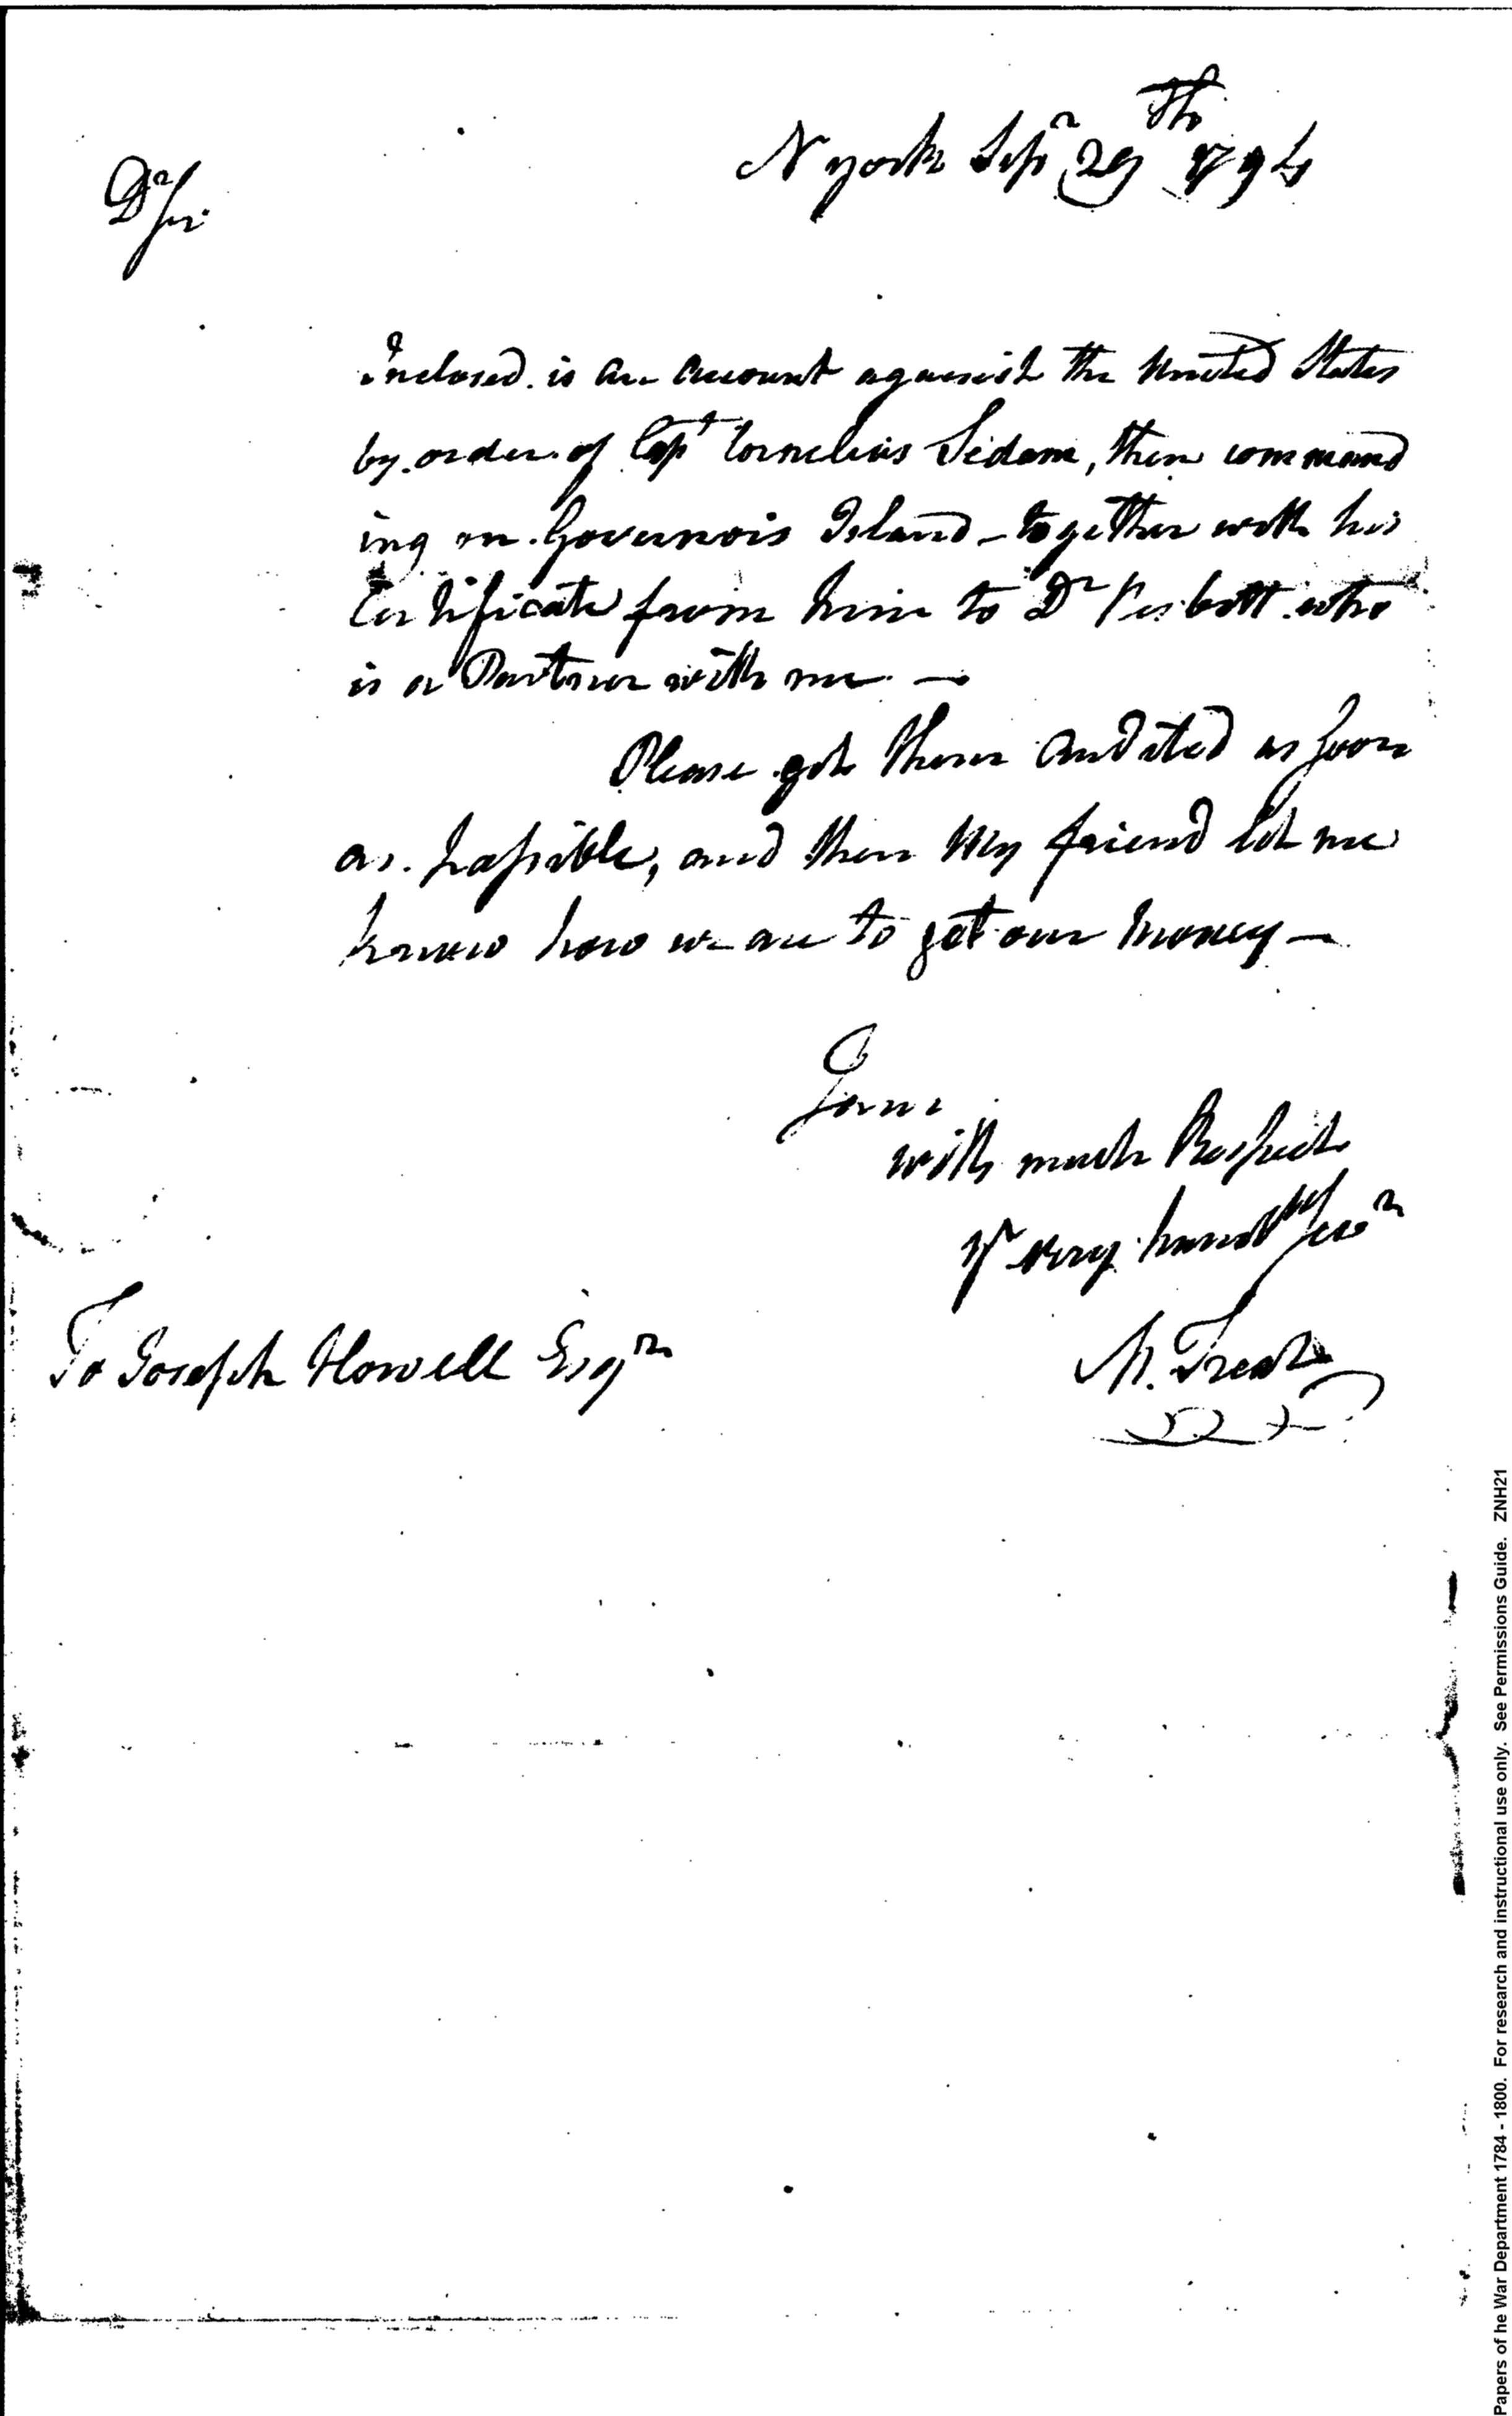 N york Sepr 29th 1794
Dr Sir
Inclosed is an account against the United States
by order of Capt Cornelius Sedam, then command
ing on Governors Island - together with his
Certificate from him to Dr who
is a Partner with me —
Please get them audited as soon
as possible, and then My friend let me
know how we are to get our money —
I am
with much Respect
Yr very humbl Ser
M. Treat
To Joseph Howell Esqr
Papers of he War Department 1784 - 1800. For research and instructional use only. See Permissions Guide. ZNH21